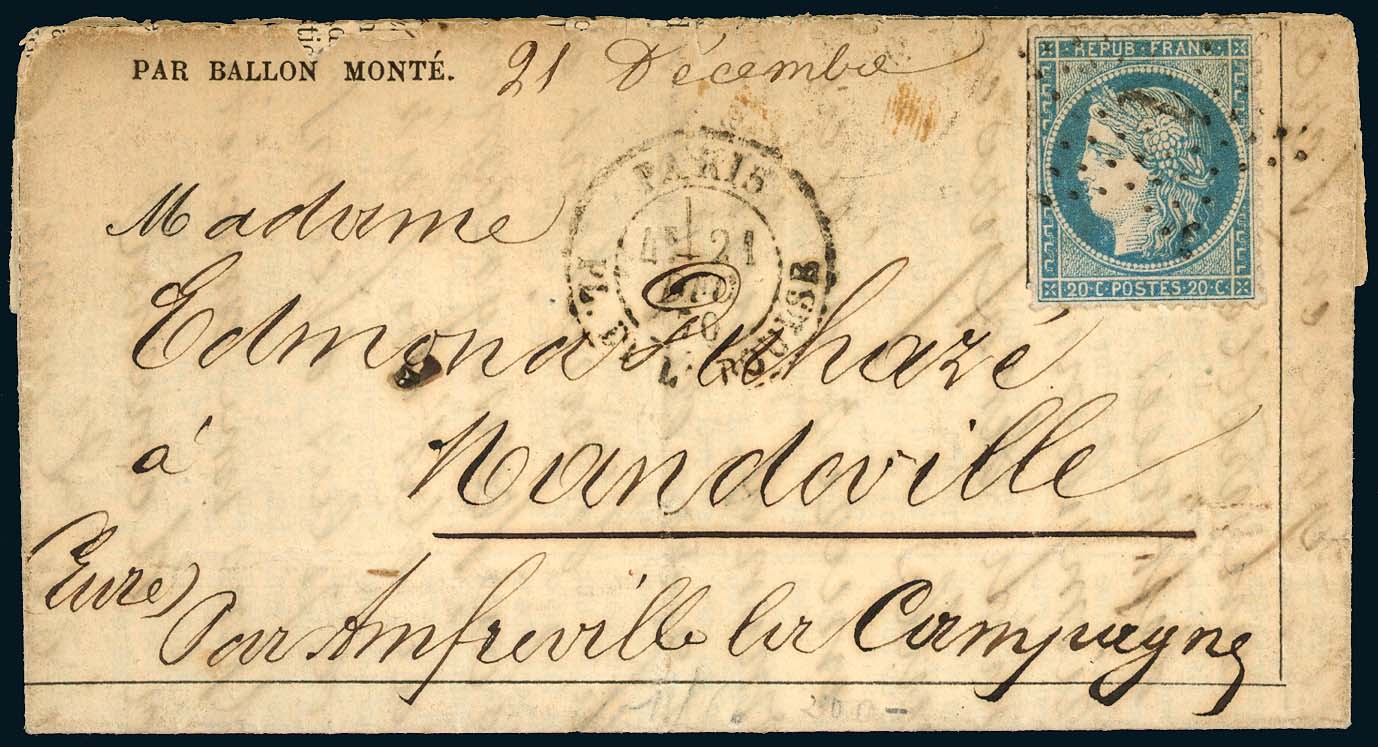 PAR BALLON MONTÉ. 21 Décembre
REPUB. FRANC.
20.C POSTES.20.C
PARIS
21
70
PL. DE LA BOURSE
Madame
Edmond
à Mandeville
(Eure)
Par Amfreville la Campagne